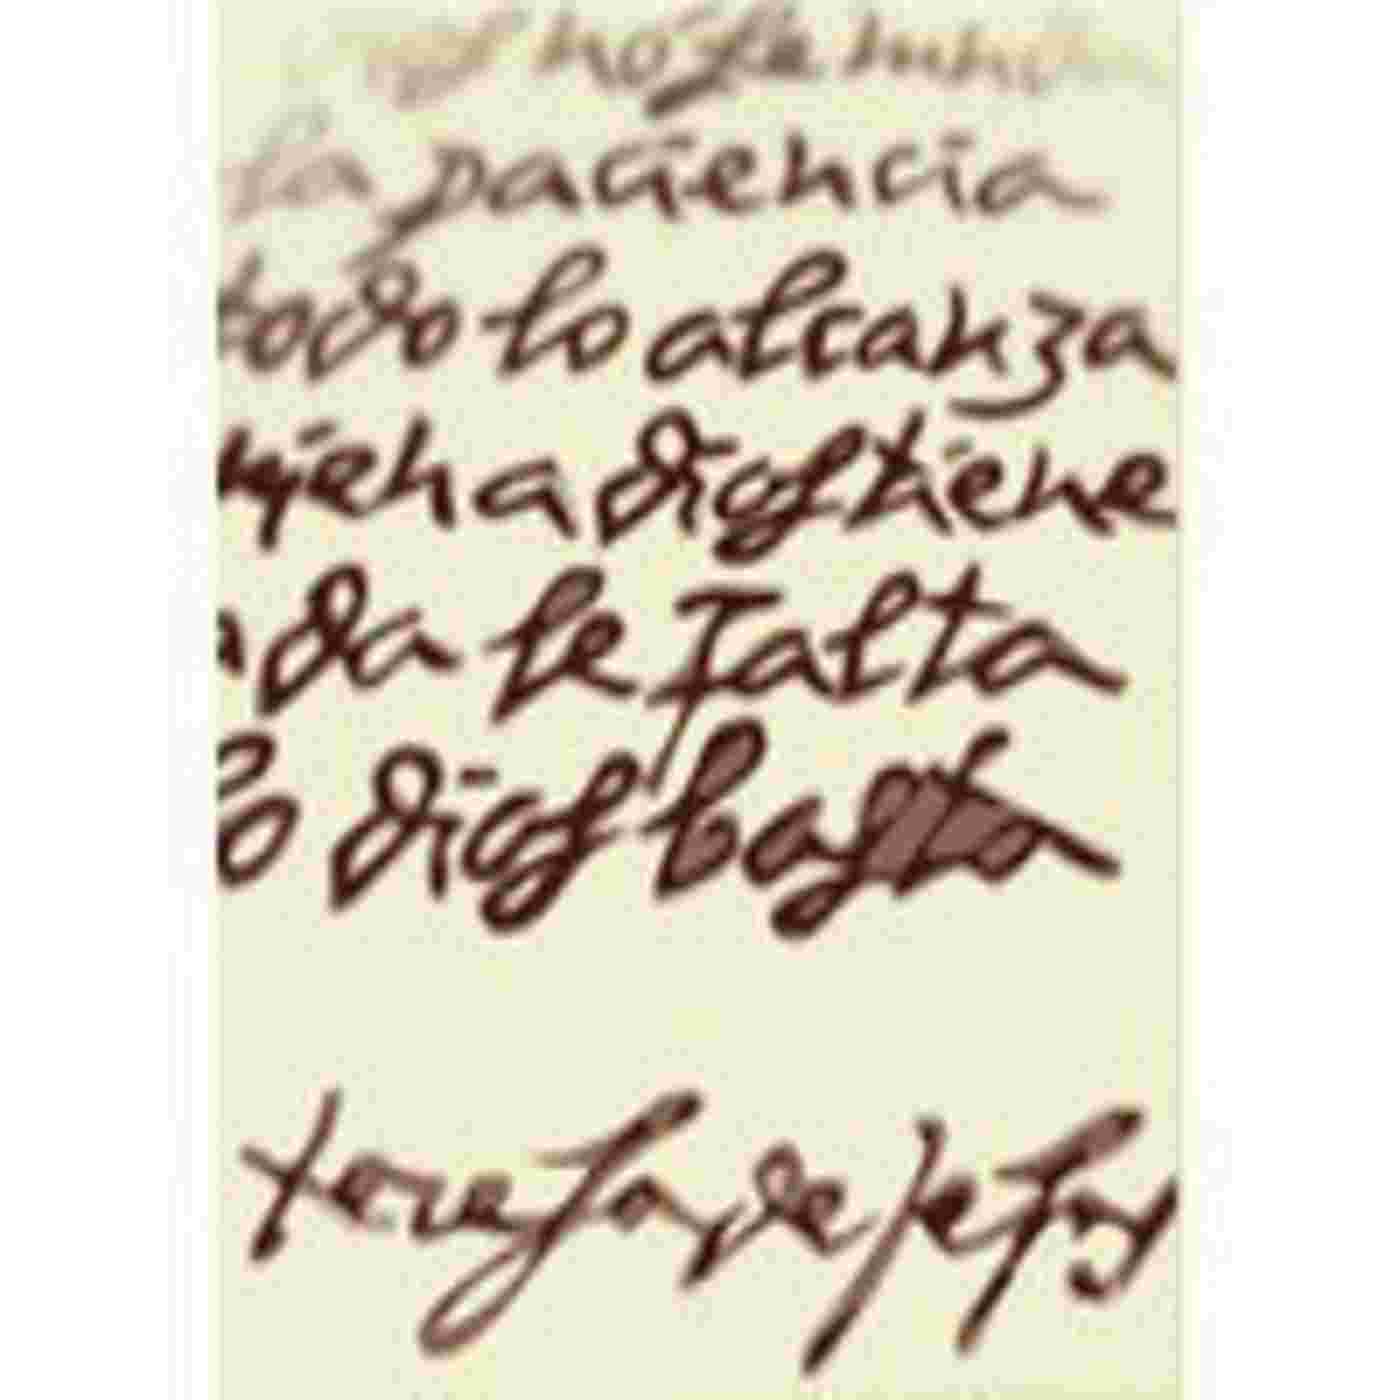 no se muda
la paciencia
todo lo alcanza
uien a dios tiene
ada le falta
lo dios basta
teresa de jesus